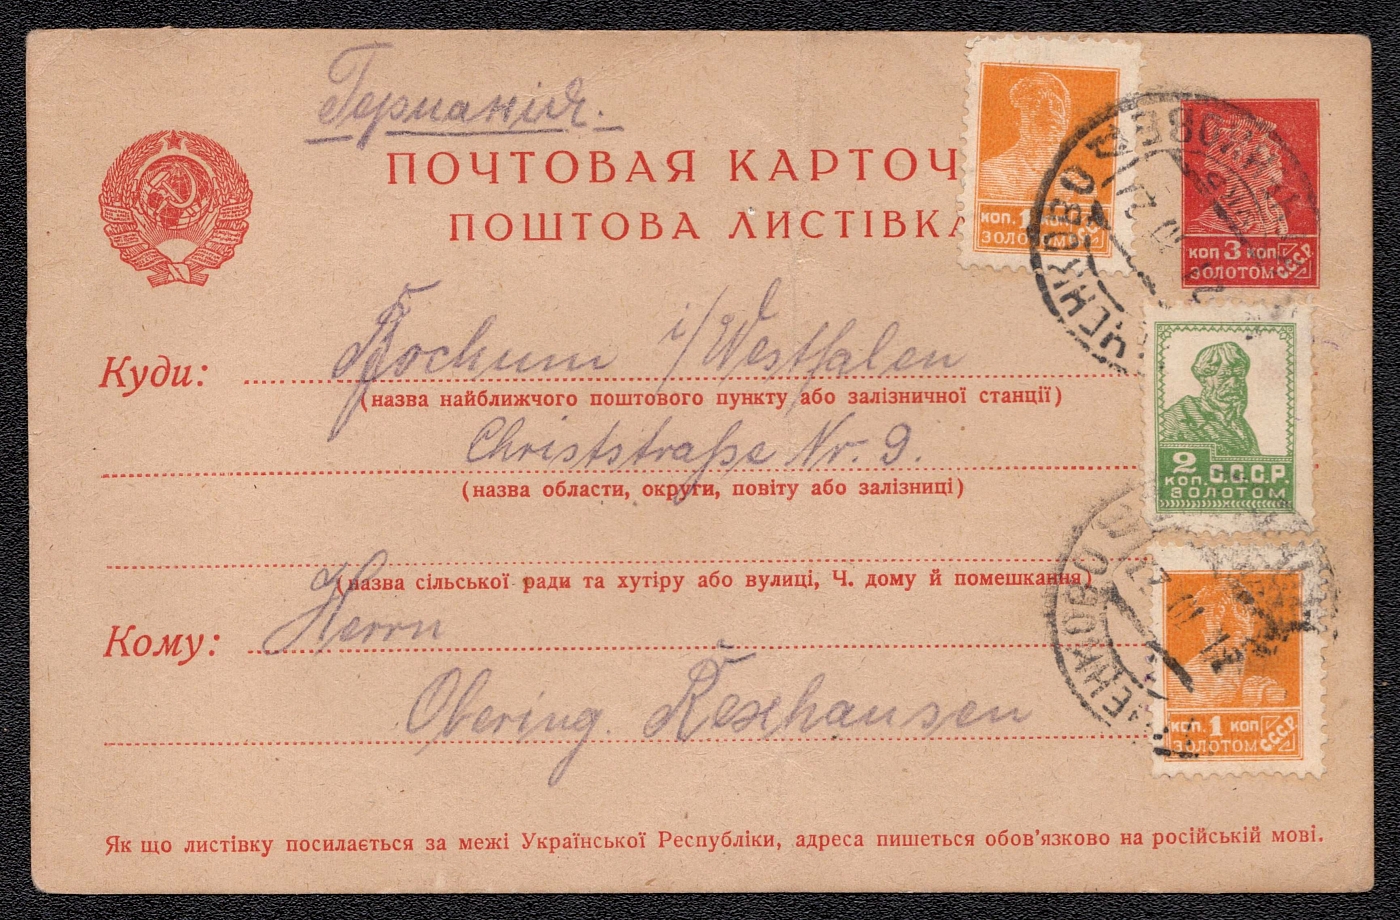 Германія.
ПОЧТОВАЯ КАРТОЧ
ПОШТОВА ЛИСТІВКА
КОП. 1 КОП
ЗОЛОТОМ СССР
КОП 3 КОП
ЗОЛОТОМ С.С.С.Р.
Куди: Bochum i/Westfalen
(назва найближчого поштового пункту або залізничної станції)
Christstraße Nr. 9.
(назва области, округи, повіту або залізниці)
2 С.С.С.Р.
КОП. ЗОЛОТОМ
(назва сільської ради та хутіру або вулиці, Ч. дому й помешкання)
Кому: Herrn
Obering. Rexhausen
КОП. 1 КОП
ЗОЛОТОМ СССР
Як що листівку посилається за межі Української Республіки, адреса пишеться обов'язково на російській мові.